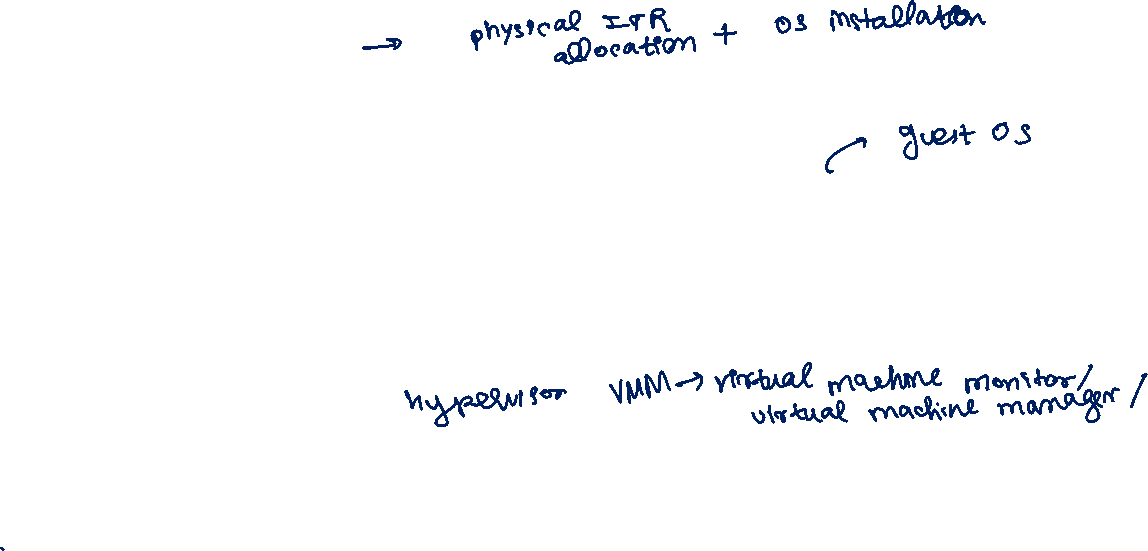 → physical ITR + OS installation
allocation
guest OS
hypervisor VMM → virtual machine monitor/
virtual machine manager /